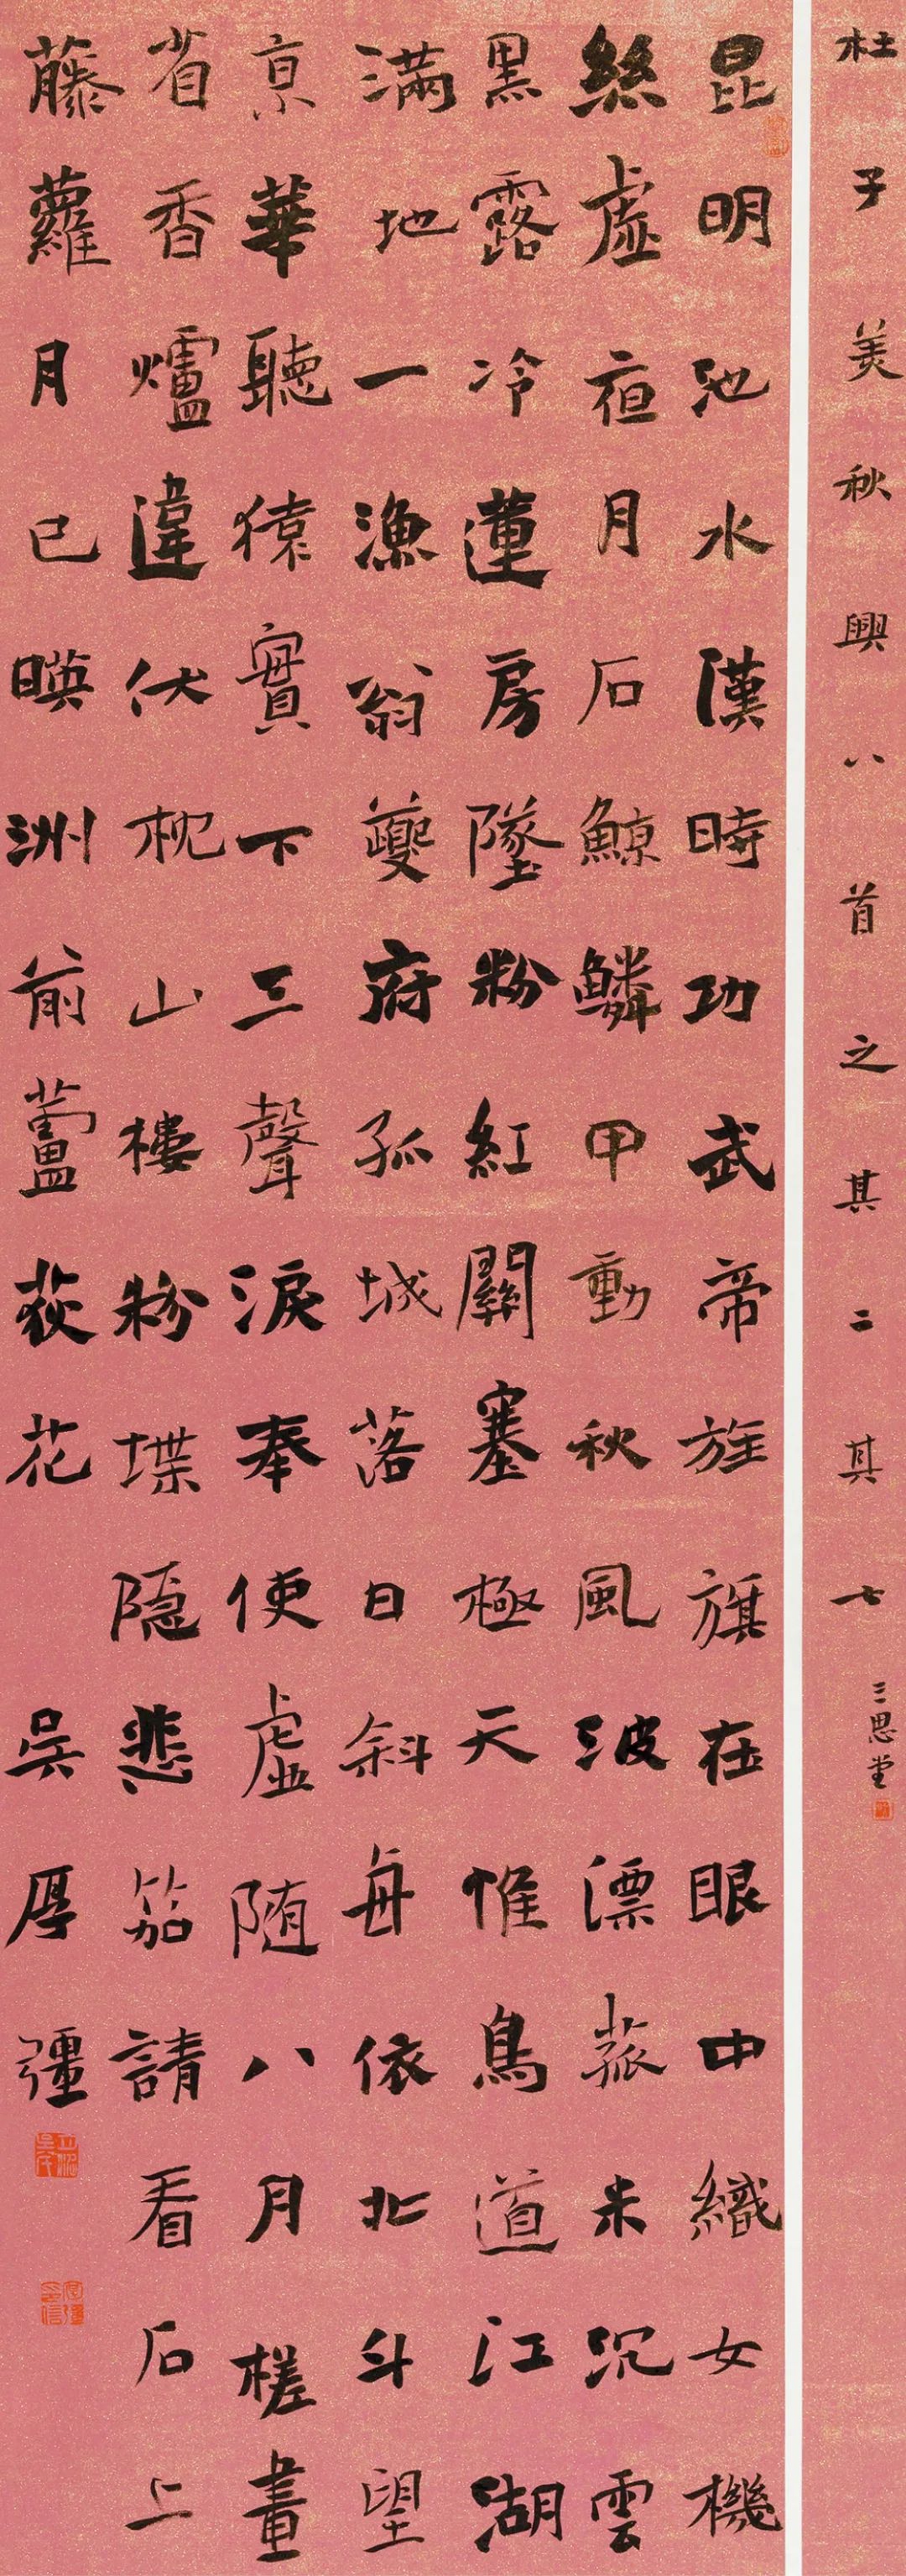 杜子美秋興八首之其二其七
三思堂
昆明池水漢時功武帝旌旗在眼中織女機
絲虛夜月石鯨鱗甲動秋風波漂菰米沉雲
黑露冷蓮房墜粉紅關塞極天惟鳥道江湖
滿地一漁翁夔府孤城落日斜每依北斗望
京華聽猿實下三聲淚奉使虛随八月槎畫
省香爐違伏枕山樓粉堞隱悲笳請看石上
藤蘿月已暎洲前蘆荻花
吳厚彊